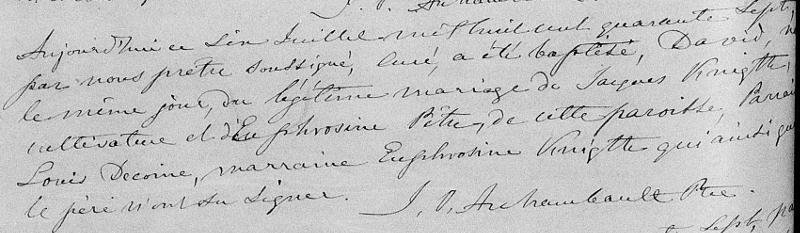 J. P. Archambault
Aujourd'hui ce six Juillet mil huit cent quarante sept,
par nous prêtre soussigné, Curé, a été baptisé, David, né
le même jour, du légitime mariage de Jacques Knigth,
cultivateur et d'Euphrosine Pitre, de cette paroisse, Parrain
Louis Decoine, marraine Euphrosine Knigth qui ainsi que
le père n'ont su signer.
J. P. Archambault Ptre.
sept, pa